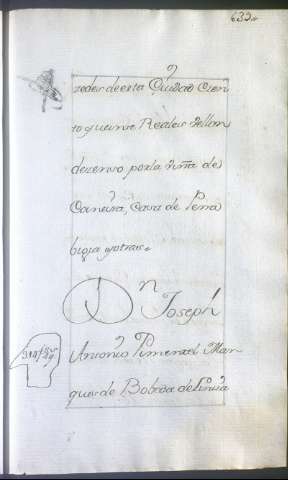 632
redes de esta Ciudad Cien
to y veinte Reales Vellon
de censo por la viña de
Caneira, Cava de Pena
bioja y otras.
Dn Joseph
Antonio Pimentel Mar
ques de Bobeda de Limia